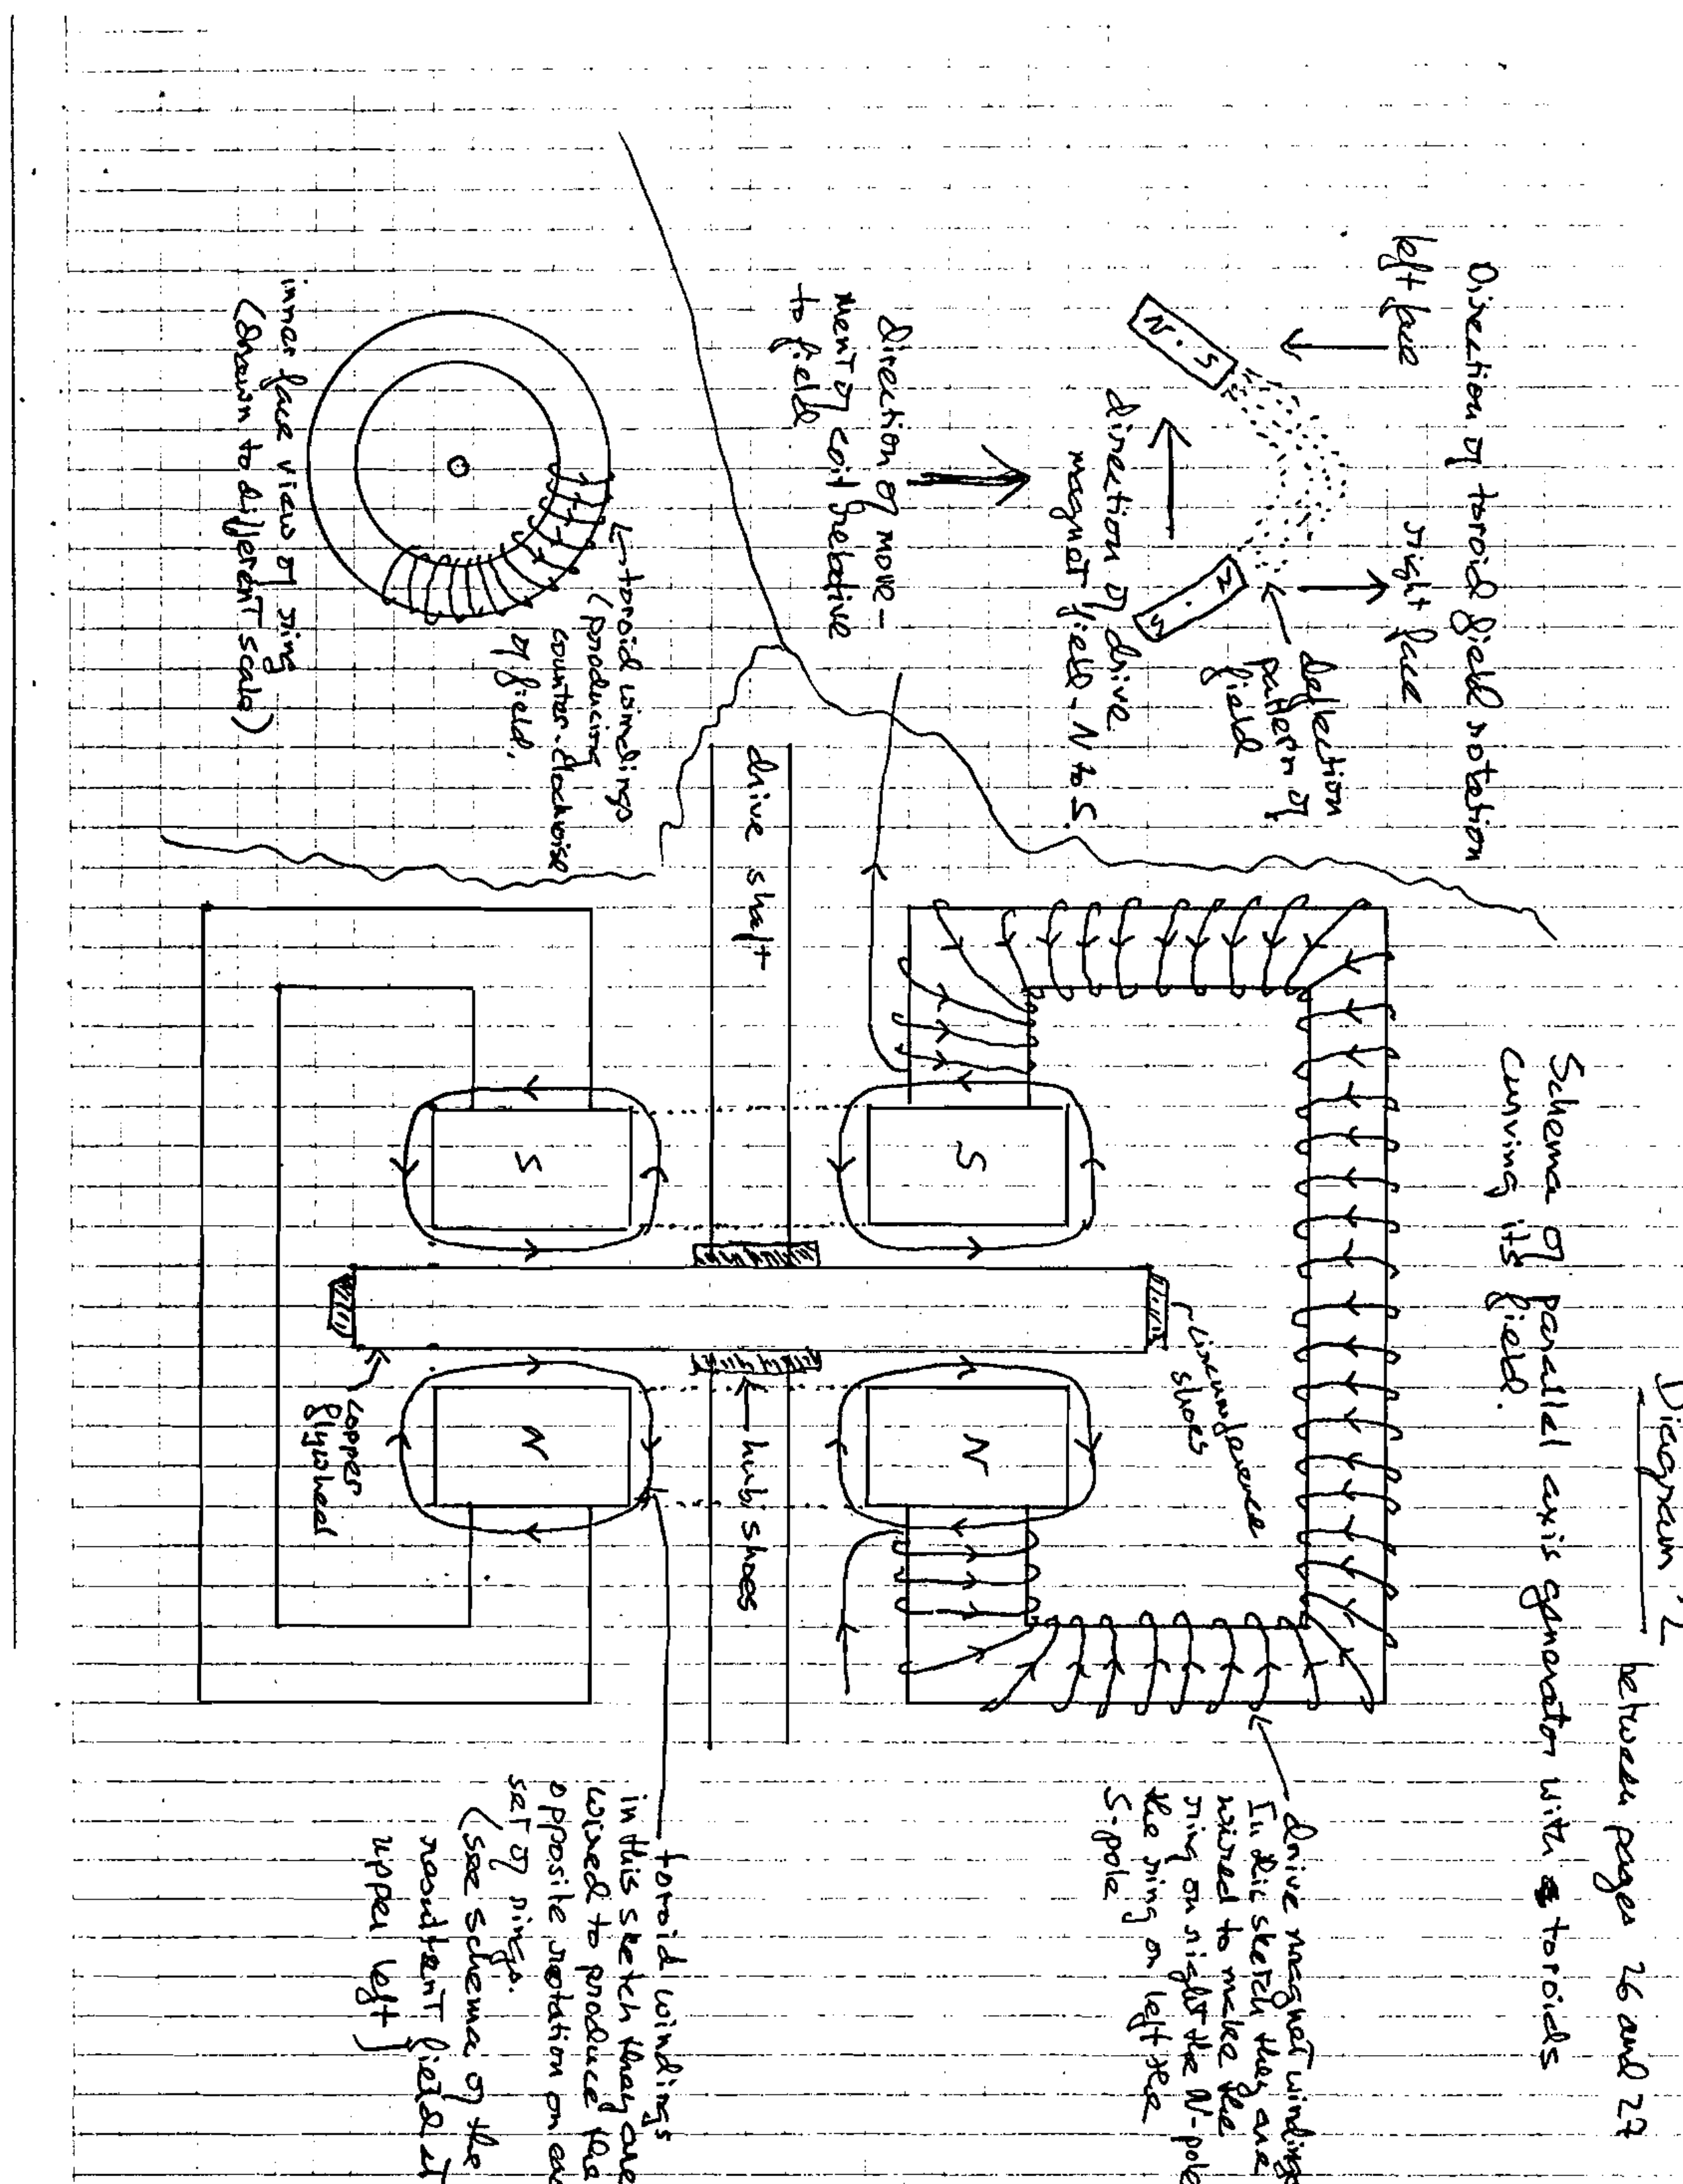 Diagram 2
between pages 26 and 27
Schema of parallel axis generator with toroids
curving its field.
Direction of toroid field rotation
left face
right face
N . S
N . S
deflection
pattern of
field
direction of drive
magnet field - N to S.
direction of move-
ment of coil relative
to field
toroid windings
(producing
counter-clockwise
of field.
inner face view of ring
(drawn to different scale)
drive shaft
S
S
N
N
circumference
shoes
hub shoes
copper
flywheel
drive magnet windings
In this sketch they are
wired to make the
ring on right the N-pole
the ring on left the
S-pole
toroid windings
in this sketch they are
wired to produce the
opposite rotation on
set of rings.
(see schema of the
resultant field at
upper left)